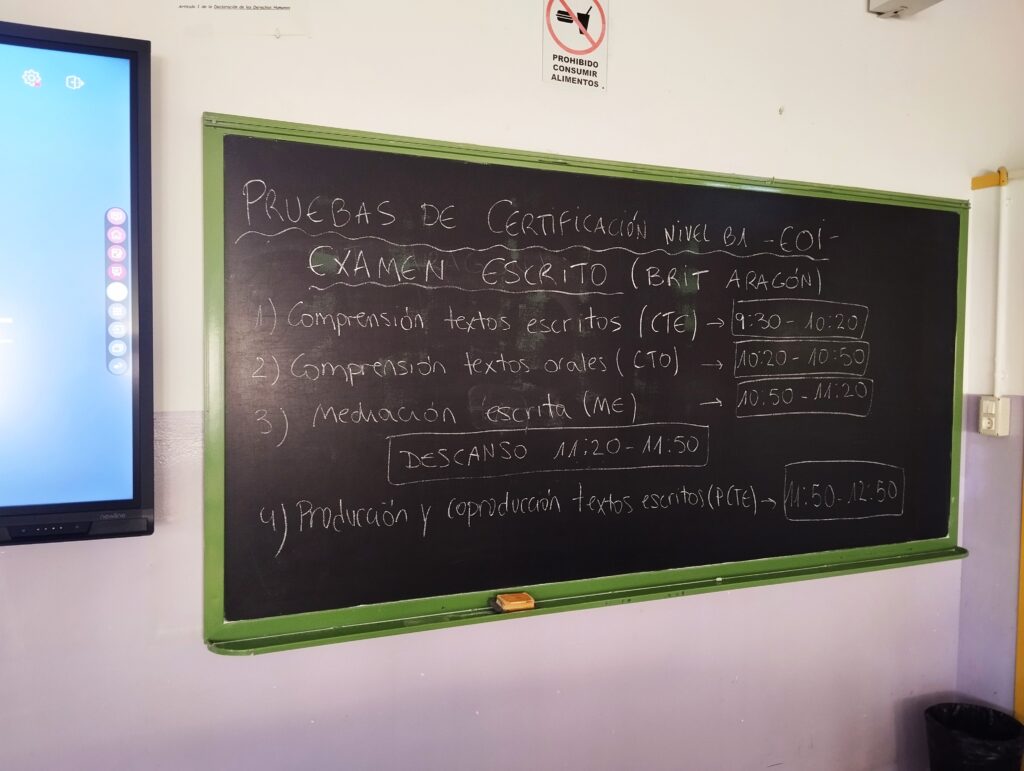 Artículo 1 de la Declaración de los Derechos Humanos
PROHIBIDO
CONSUMIR
ALIMENTOS
PRUEBAS DE CERTIFICACIÓN NIVEL B1 - EOI -
EXAMEN ESCRITO (BRIT ARAGÓN)
1) Comprensión textos escritos (CTE) → 9:30 - 10:20
2) Comprensión textos orales (CTO) → 10:20 - 10:50
3) Mediación escrita (ME) → 10:50 - 11:20
DESCANSO 11:20 - 11:50
4) Producción y coproducción textos escritos (PCTE) → 11:50 - 12:50
newline